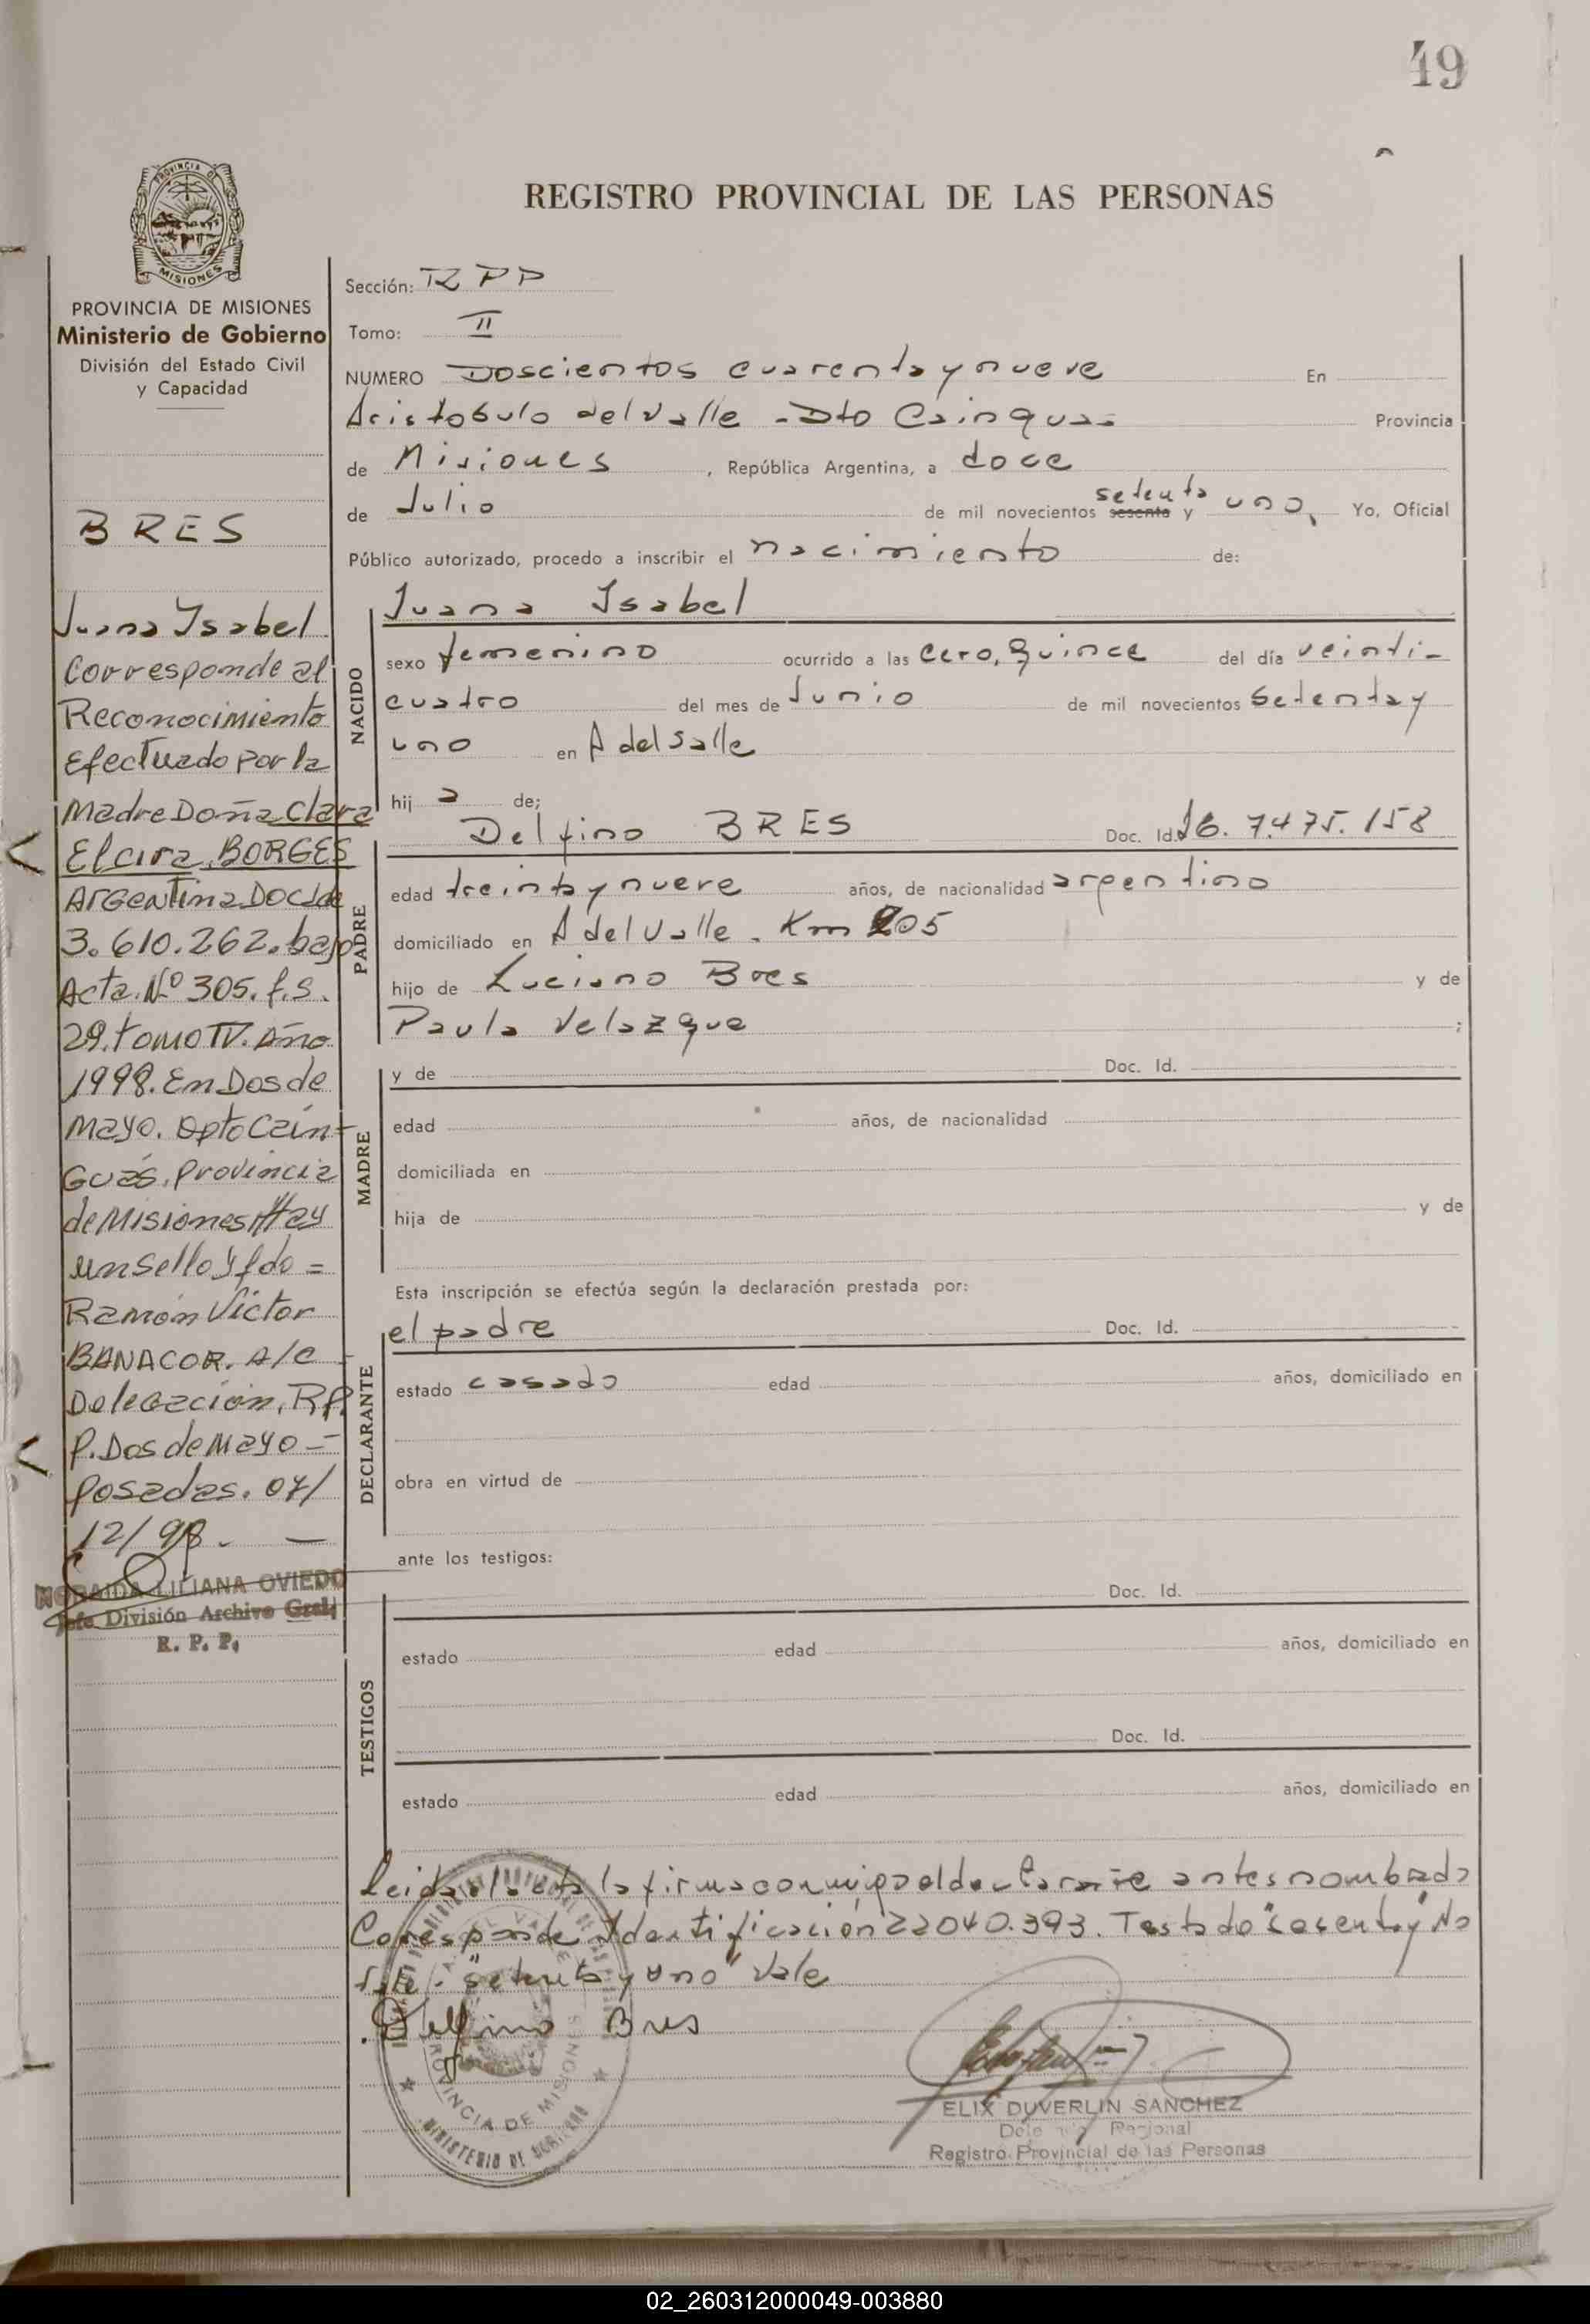 49
REGISTRO PROVINCIAL DE LAS PERSONAS
PROVINCIA DE MISIONES
Ministerio de Gobierno
División del Estado Civil
y Capacidad
BRES
Juana Isabel
Corresponde al
Reconocimiento
Efectuado por la
Madre Doña Clara
Elcira. BORGES
Argentina Doc Ide
3.610.262. bajo
Acta. Nº 305. f.s.
29. tomo IV. Año
1998. En Dos de
Mayo. Dpto Cain-
Guás. Provincia
de Misiones, Hay
un sello y fdo =
Ramón Victor
BANACOR. A/C
Delegación, R.P.
P. Dos de Mayo -
Posadas. 07/
12/98. -
NORAIDA LILIANA OVIEDO
Jefe División Archivo Gral.
R. P. P.
Sección: R P P
Tomo: II
NUMERO Doscientos cuarenta y nueve En
Aristobulo del Valle - Dto Cainguas
Provincia
de Misiones , República Argentina, a doce
de Julio de mil novecientos sesenta setenta y uno, Yo, Oficial
Público autorizado, procedo a inscribir el nacimiento de:
NACIDO
Juana Isabel
sexo femenino ocurrido a las cero, quince del día veinti-
cuatro del mes de Junio de mil novecientos setenta y
uno en A del Valle
hij a de;
PADRE
Delfino BRES Doc. Id. 7.475.158
edad treinta y nueve años, de nacionalidad argentino
domiciliado en A del Valle. Km 205
hijo de Luciano Bres y de
Paula Velazque ;
MADRE
y de Doc. Id.
edad años, de nacionalidad
domiciliada en
hija de y de
Esta inscripción se efectúa según la declaración prestada por:
DECLARANTE
el padre Doc. Id.
estado casado edad años, domiciliado en
obra en virtud de
ante los testigos:
TESTIGOS
Doc. Id.
estado edad años, domiciliado en
Doc. Id.
estado edad años, domiciliado en
Leida el acta la firma conmigo el declarante antes nombrado
Corresponde Identificación 22040.393. Testado "sesenta y" No
Vale - "setenta y uno" Vale
Delfino Bres
PROVINCIA DE MISIONES
MINISTERIO DE GOBIERNO
ELIX DUVERLIN SANCHEZ
Regional
Registro Provincial de las Personas
02_260312000049-003880